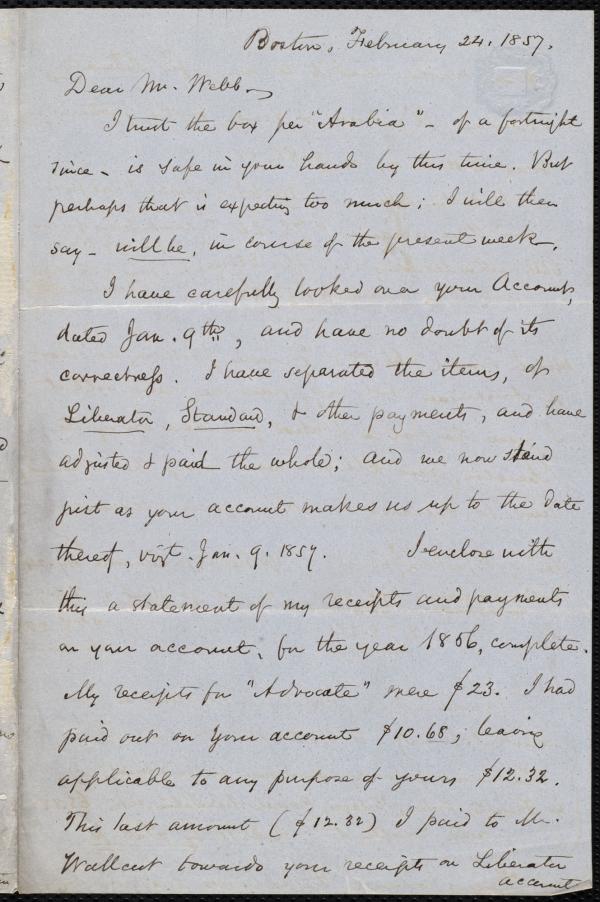 Boston, February 24. 1857.
Dear Mr. Webb,
I trust the box per "Arabia" - of a fortnight
since - is safe in your hands by this time. But
perhaps that is expecting too much; I will then
say - will be, in course of the present week.
I have carefully looked over your Account,
dated Jan. 9th, and have no doubt of its
correctness. I have separated the items, of
Liberator, Standard, & other payments, and have
adjusted & paid the whole; and we now stand
just as your account makes us up to the date
thereof, vizt. Jan. 9. 1857. I enclose with
this a statement of my receipts and payments
on your account, for the year 1856, complete.
My receipts for "Advocate" were $23. I had
paid out on your account $10.68; leaving
applicable to any purpose of yours $12.32.
This last amount ($12.32) I paid to Mr.
Wallcut towards your receipts on Liberator
account